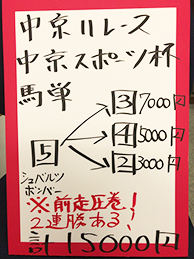 中京11レース
中京スポーツ杯
馬単
③7000円
⑤④5000円
②3000円
シュバルツ
ボンバー
※前走圧巻!
2連勝ある!
計15000円